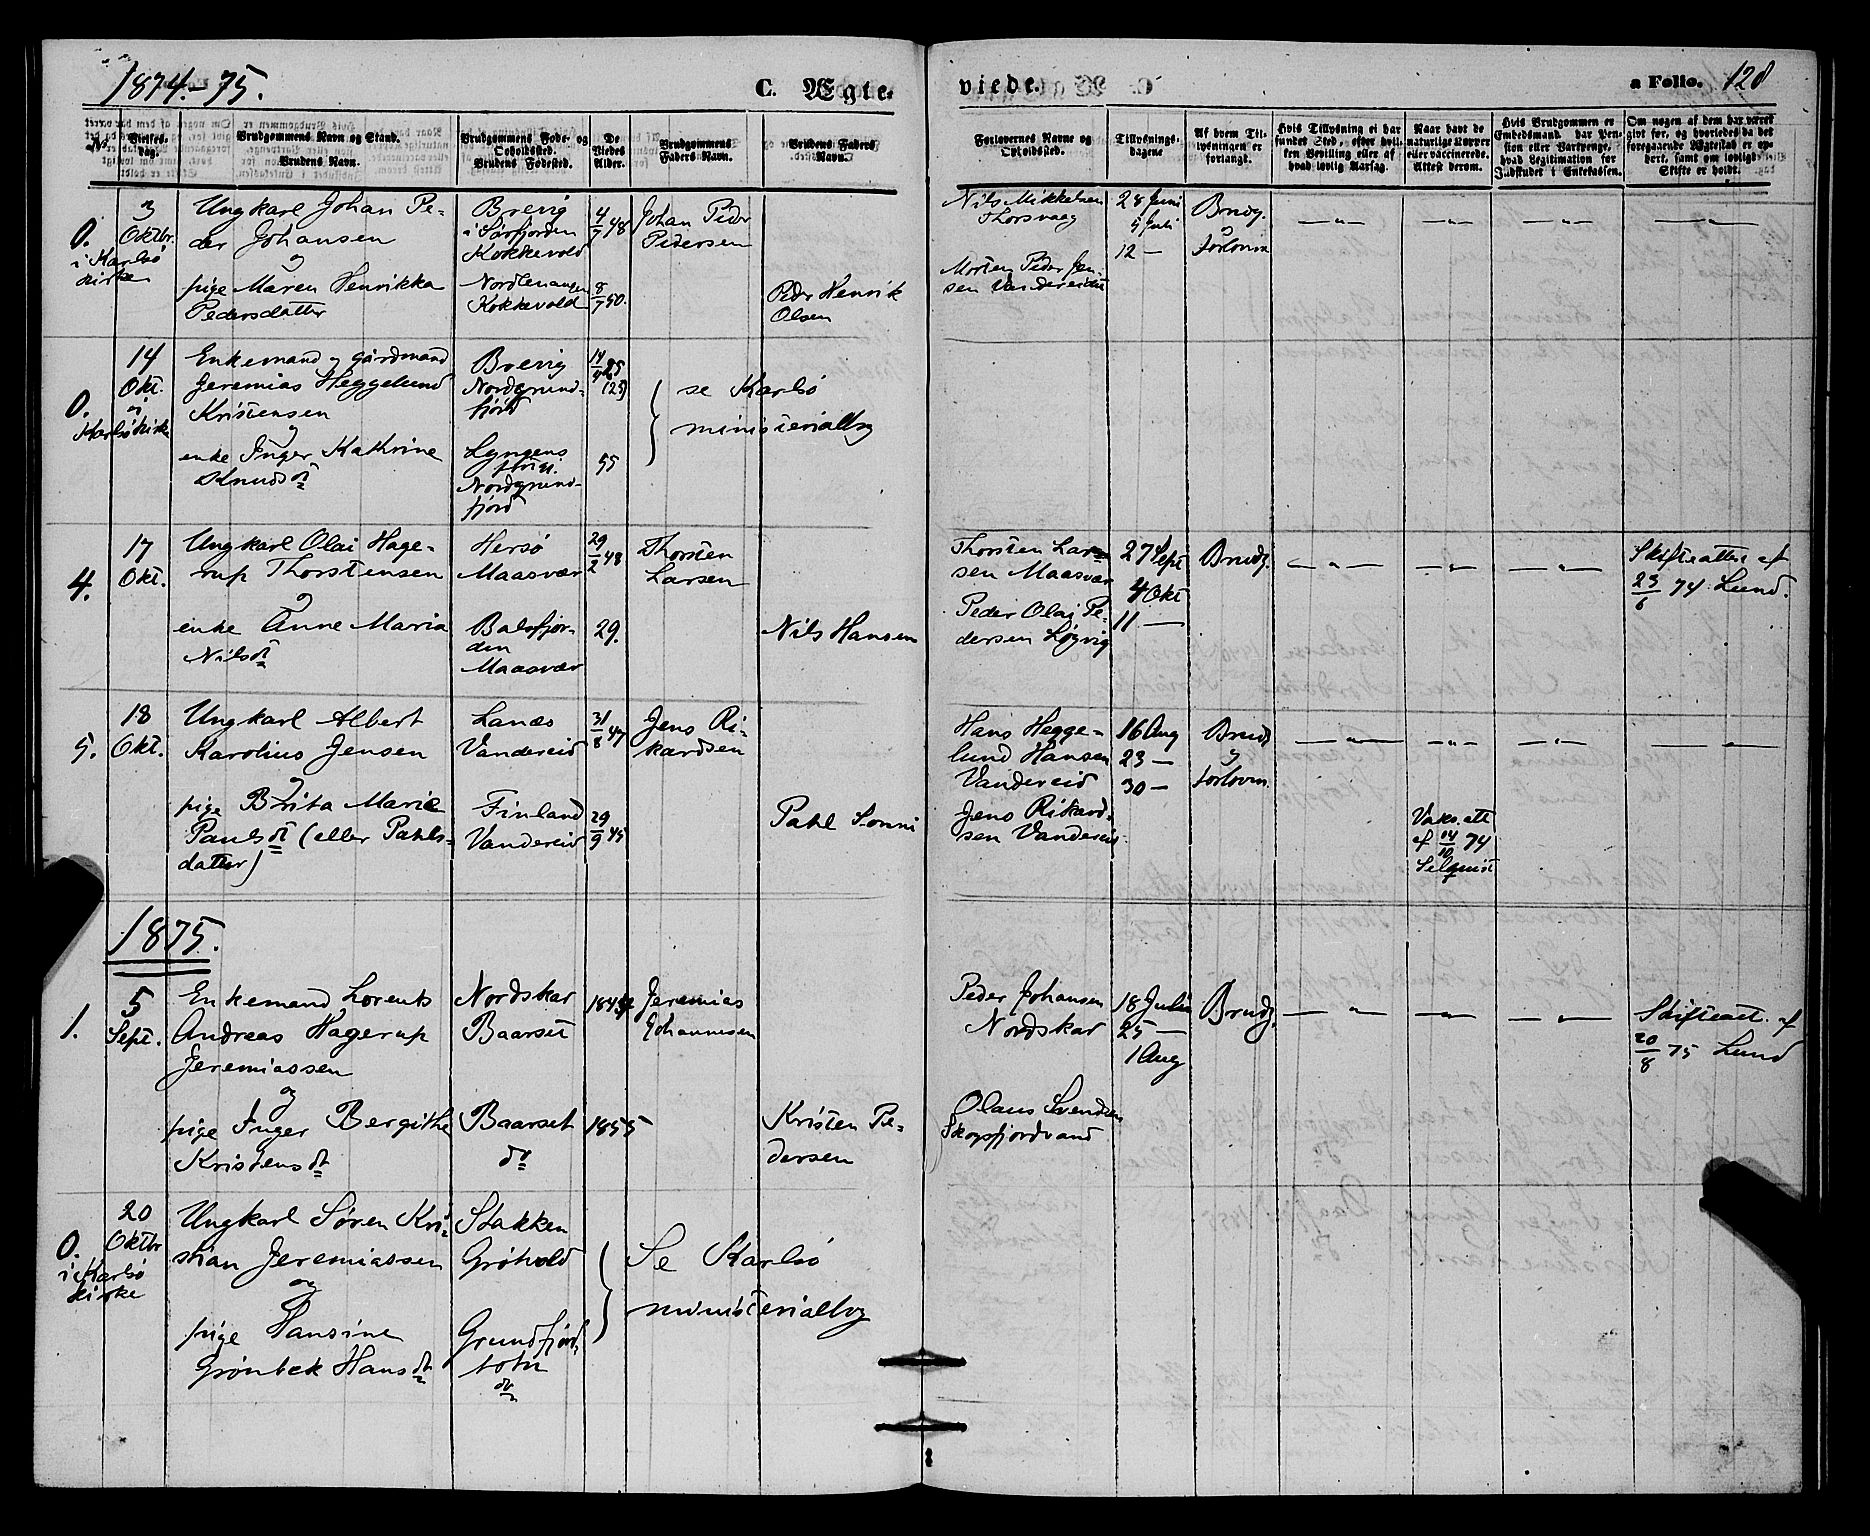 1874-75.
C. Ægte-
viede.
a Folio. 128
No.
Vielses-
dag.
Brudgommens Navn og Stand.
Brudens Navn.
Brudgommens Føde- og
Opholdssted.
Brudens Fødested.
De
Viedes
Alder.
Brudgommens
Faders Navn.
Brudens Faders
Navn.
Forlovernes Navne og
Opholdssted.
Tillysnings-
dagene
Af hvem Til-
lysningen er
forlangt.
Hvis Tillysning ei har
fundet Sted, efter hvil-
ken Bevilling eller af
hvad lovlig Aarsag.
Naar havt de
naturlige Kopper
eller vaccinerede.
Attest derom.
Hvis Brudgommen er
Embedsmand, har Pen-
sion eller Vartpenge,
hvad Legitimation for
Indskudet i Enkekassen.
Om nogen af dem har været
gift før, og hvorledes da det
foregaaende Ægteskab er op-
hævt, samt om lovligt
Skifte er holdt.
0.
i Karlsö
kirke
3
Oktbr.
Ungkarl Johan Pe-
der Johansen
og
pige Maren Henrikka
Pedersdatter
Brevig
i Sörfjorden
Kokkevold
Nordlenangen
Kokkevold
4/7 48
8/7 50.
Johan Peder
Pedersen
Peder Henrik
Olsen
Nils Mikkelsen
Thorsvaag
Morten Peder Jen-
sen Vandereidet
28 Juni
5 Juli
12 —
Brudg.
og
Forlovern
— " —
— " —
— " —
— " —
0.
i
Karlsökirke
14
Okt.
Enkemand og gårdmand
Jeremias Heggelund
Kristensen
og
enke Inger Kathrine
Knudsdt
Brevig
Nordgrund-
fjord
Lyngens
Nordgrund-
fjord
55
se Karlsö
ministerialbog
4.
17
Okt.
Ungkarl Olai Hage-
rup Thorstensen
og
enke Anne Maria
Nilsdt
Hersö
Maasvær
Balsfjor-
den
Maasvær
29/2 48
29.
Thorsten
Larsen
Nils Hansen
Thorsten Lar-
sen Maasvær
Peder Olai Pe-
dersen Løgvig
27 Sept
4 Okt
11 —
Brudg.
— " —
— " —
— " —
Skifteattest af
23/6 74 Lund.
5.
18
Okt.
Ungkarl Albert
Karolius Jensen
og
pige Brita Marie
Paulsdt (eller Pahls-
datter)
Lanæs
Vandereid
Finland
Vandereid
31/8 47
29/9 45
Jens Ri-
kardsen
Pahl Sonni
Hans Hegge-
lund Hansen
Vandereid
Jens Rikard-
sen Vandereid
16 Aug
23 —
30 —
Brudg
og
Forlovern.
— " —
— " —
— " —
— " —
Vaks. att
af 14/10 74
Selqvist
1875.
1.
5
Sept.
Enkemand Lorents
Andreas Hagerup
Jeremiassen
og
pige Inger Bergithe
Kristensdt
Nordskar
Baarset
Baarset
do
1855
Jeremias
Johannesen
Kristen Pe-
dersen
Peder Johansen
Nordskar
Olaus Svendsen
Skogsfjordvand
18 Juli
25 —
1 Aug
Brudg.
— " —
— " —
— " —
Skifteatt. af
20/8 75 Lund
0.
i Karlsö
kirke
20
Oktbr
Ungkarl Sören Kri-
stian Jeremiassen
og
pige Hansine
Grönbek Hansdt
Stakken
Gröhold
Grundfjord-
botn
do
Se Karlsö
ministerialbog